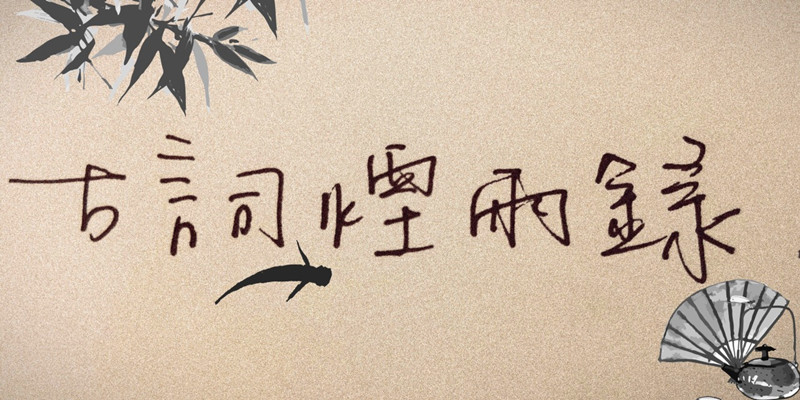 古詞煙雨錄